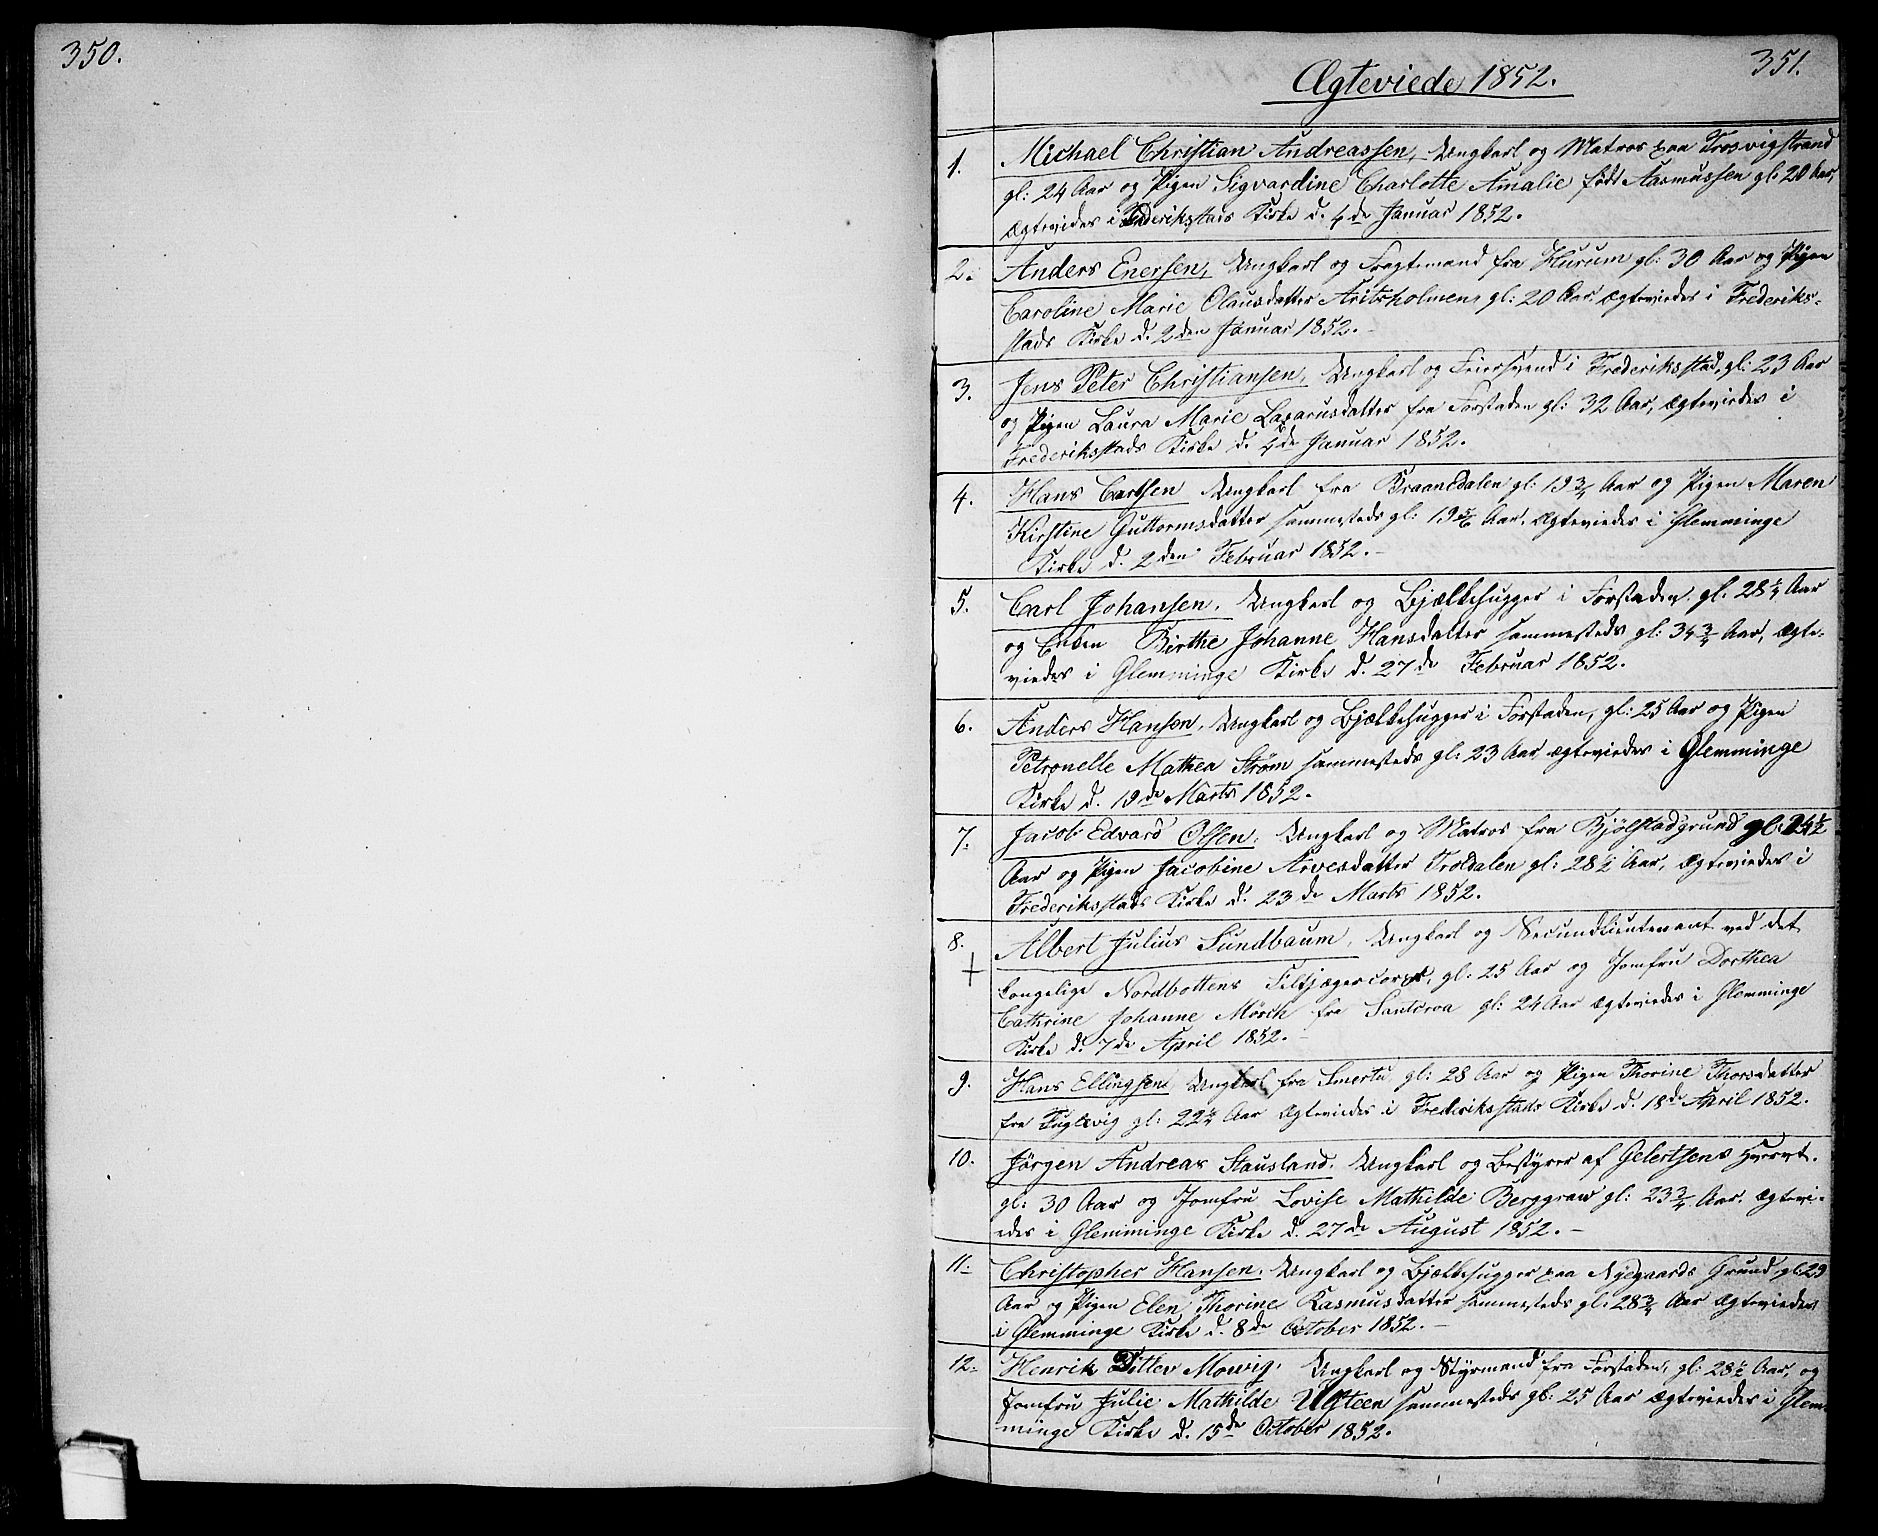 350.
351.
Ægteviede 1852.
1. Michael Christian Andreassen, Ungkarl og Matros paa Trosvigstrand
gl: 24 Aar og Pigen Sigvardine Charlotte Amalie født Aasmussen gl: 20 Aar,
ægtevides i Frederiksstads Kirke d. 4de Januar 1852.
2. Anders Enersen, Ungkarl og Fragtemand fra Hurum gl: 30 Aar og Pigen
Caroline Marie Olausdatter gl: 20 Aar, ægteviedes i Frederiks-
stads Kirke d. 2den Januar 1852.-
3. Jens Peter Christiansen, Ungkarl og Feiersvend i Frederiksstad, gl: 23 Aar
og Pigen Laura Marie Lazarusdatter fra Forstaden gl: 32 Aar, ægteviedes i
Frederiksstads Kirke d. 4de Januar 1852.
4. Hans Carlsen Ungkarl fra Braanedalen gl: 19 3/4 Aar og Pigen Maren
Kirstine Guttormsdatter sammesteds gl: 19 5/6 Aar, ægteviedes i Glemminge
Kirke d. 2den Februar 1852.-
5. Carl Johansen, Ungkarl og Bjælkehugger i Forstaden, gl. 28 1/4 Aar
og Enken Birthe Johanne Hansdatter sammesteds gl: 34 3/4 Aar, ægte-
viedes i Glemminge Kirke d. 27de Februar 1852.
6. Anders Hansen, Ungkarl og Bjælkehugger i Forstaden, gl: 25 Aar og Pigen
Petronelle Mathea Strøm sammesteds gl: 23 Aar ægteviedes i Glemminge
Kirke d. 19de Marts 1852.
7. Jacob Edvard Olsen, Ungkarl og Matros fra Bjølstadgrund gl: 24 1/2
Aar og Pigen Jacobine Arvesdatter Troldalen gl: 28 1/2 Aar, ægteviedes i
Frederiksstads Kirke d. 23de Marts 1852.
8. Albert Julius Sundbaum, Ungkarl og Secundlieutenant ved det
kongelige Nordbottens Feltjægercorps, gl: 25 Aar og Jomfru Dorthea
Cathrine Johanne Mörch fra Santcroa gl: 24 Aar ægteviedes i Glemminge
Kirke d. 7de April 1852.-
9. Hans Ellingsen Ungkarl fra Smertu gl: 28 Aar og Pigen Thorine Thorsdatter
fra Fuglevig gl: 22 Aar ægteviedes i Frederiksstads Kirke d. 18de April 1852.
10. Jörgen Andreas Stausland. Ungkarl og Bestyrer af Gelertsens
gl: 30 Aar og Jomfru Lovise Mathilde Berggraw gl: 23 3/4 Aar, ægtevi-
edes i Glemminge Kirke d. 27de August 1852.-
11. Christopher Hansen, Ungkarl og Bjælkehugger paa Nyegaards Grund, gl: 29
Aar og Pigen Elen Thorine Rasmusdatter sammesteds gl: 28 3/4 Aar ægteviedes
i Glemminge Kirke d. 8de October 1852.-
12. Henrik Ditlev Mowig, Ungkarl og Styrmand fra Forstaden, gl: 28 1/2 Aar, og
Jomfru Julie Mathilde Ulsteen sammesteds gl: 25 Aar ægteviedes i Glem-
minge Kirke d. 15de October 1852.